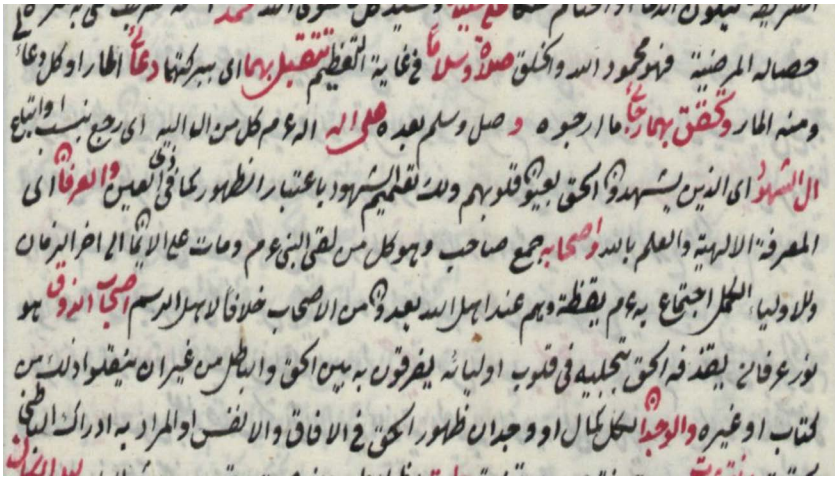 خصاله المرضية فهو محمود الله والخلق صلاة وسلاما في غاية التعظيم تتقبل بهما اى ببركتهما دعائى الحار او كل دعاء
ومنه الحار وتحقق بهما رجائى ما ارجوه وصل وسلم بعده على اله اله ءم كل من ال اليه اى رجع بنسب او اتباع
ال الشهود اى الذين يشهدون الحق بعيون قلوبهم ولك تعميم الشهود باعتبار الظهور كما فى ذى العين والعرفان اى
المعرفة الالهية والعلم بالله واصحابه جمع صاحب وهو كل من لقى النبى ءم ومات على الايمان الى اخر الزمان
وللاولياء الكمل اجتماع به ءم يقظة وهم عند اهل الله يعدون من الاصحاب خلافا لاهل الرسم اصحاب الذوق هو
نور عرفانى يقذفه الحق بتجليه فى قلوب اوليائه يفرقون به بين الحق والباطل من غير ان ينقلوا ذلك من
كتاب او غيره والوجدان لكل كمال او وجدان ظهور الحق فى الافاق والانفس او المراد به ادراك الباطنى